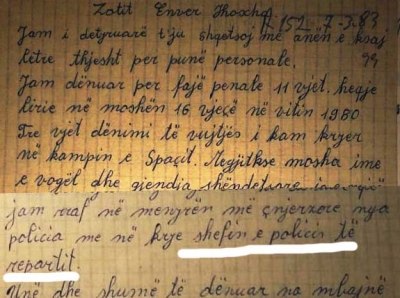 Zotit Enver Hoxha 7.152 7-3-83
Jam i detyruarë t'ju shqetsoj me anën e ksaj
letre thjesht per punë personale.
Jam dënuar per fajë penale 11 vjet. heqje
lirie në moshën 16 vjeçë në vitin 1980
Tre vjet dënimi të vujtjës i kam kryer
në kampin e Spaçit. Megjitkse mosha ime
e vogël dhe gjendja shëndetsore
jam rraf në menyrën më çnjerzore nga
policia me në krye shefin e policis të
repartit
Unë dhe shumë të dënuar na mbajnë